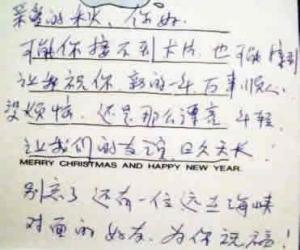 亲爱的秋，你好。
可能你接不到卡片，也可能接到
让我祝你，新的一年万事顺心，
没烦恼，还是那么漂亮 年轻，
让我们的友谊，日久天长！
MERRY CHRISTMAS AND HAPPY NEW YEAR.
别忘了还有一位远在海峡
对面的好友，为你祝福！